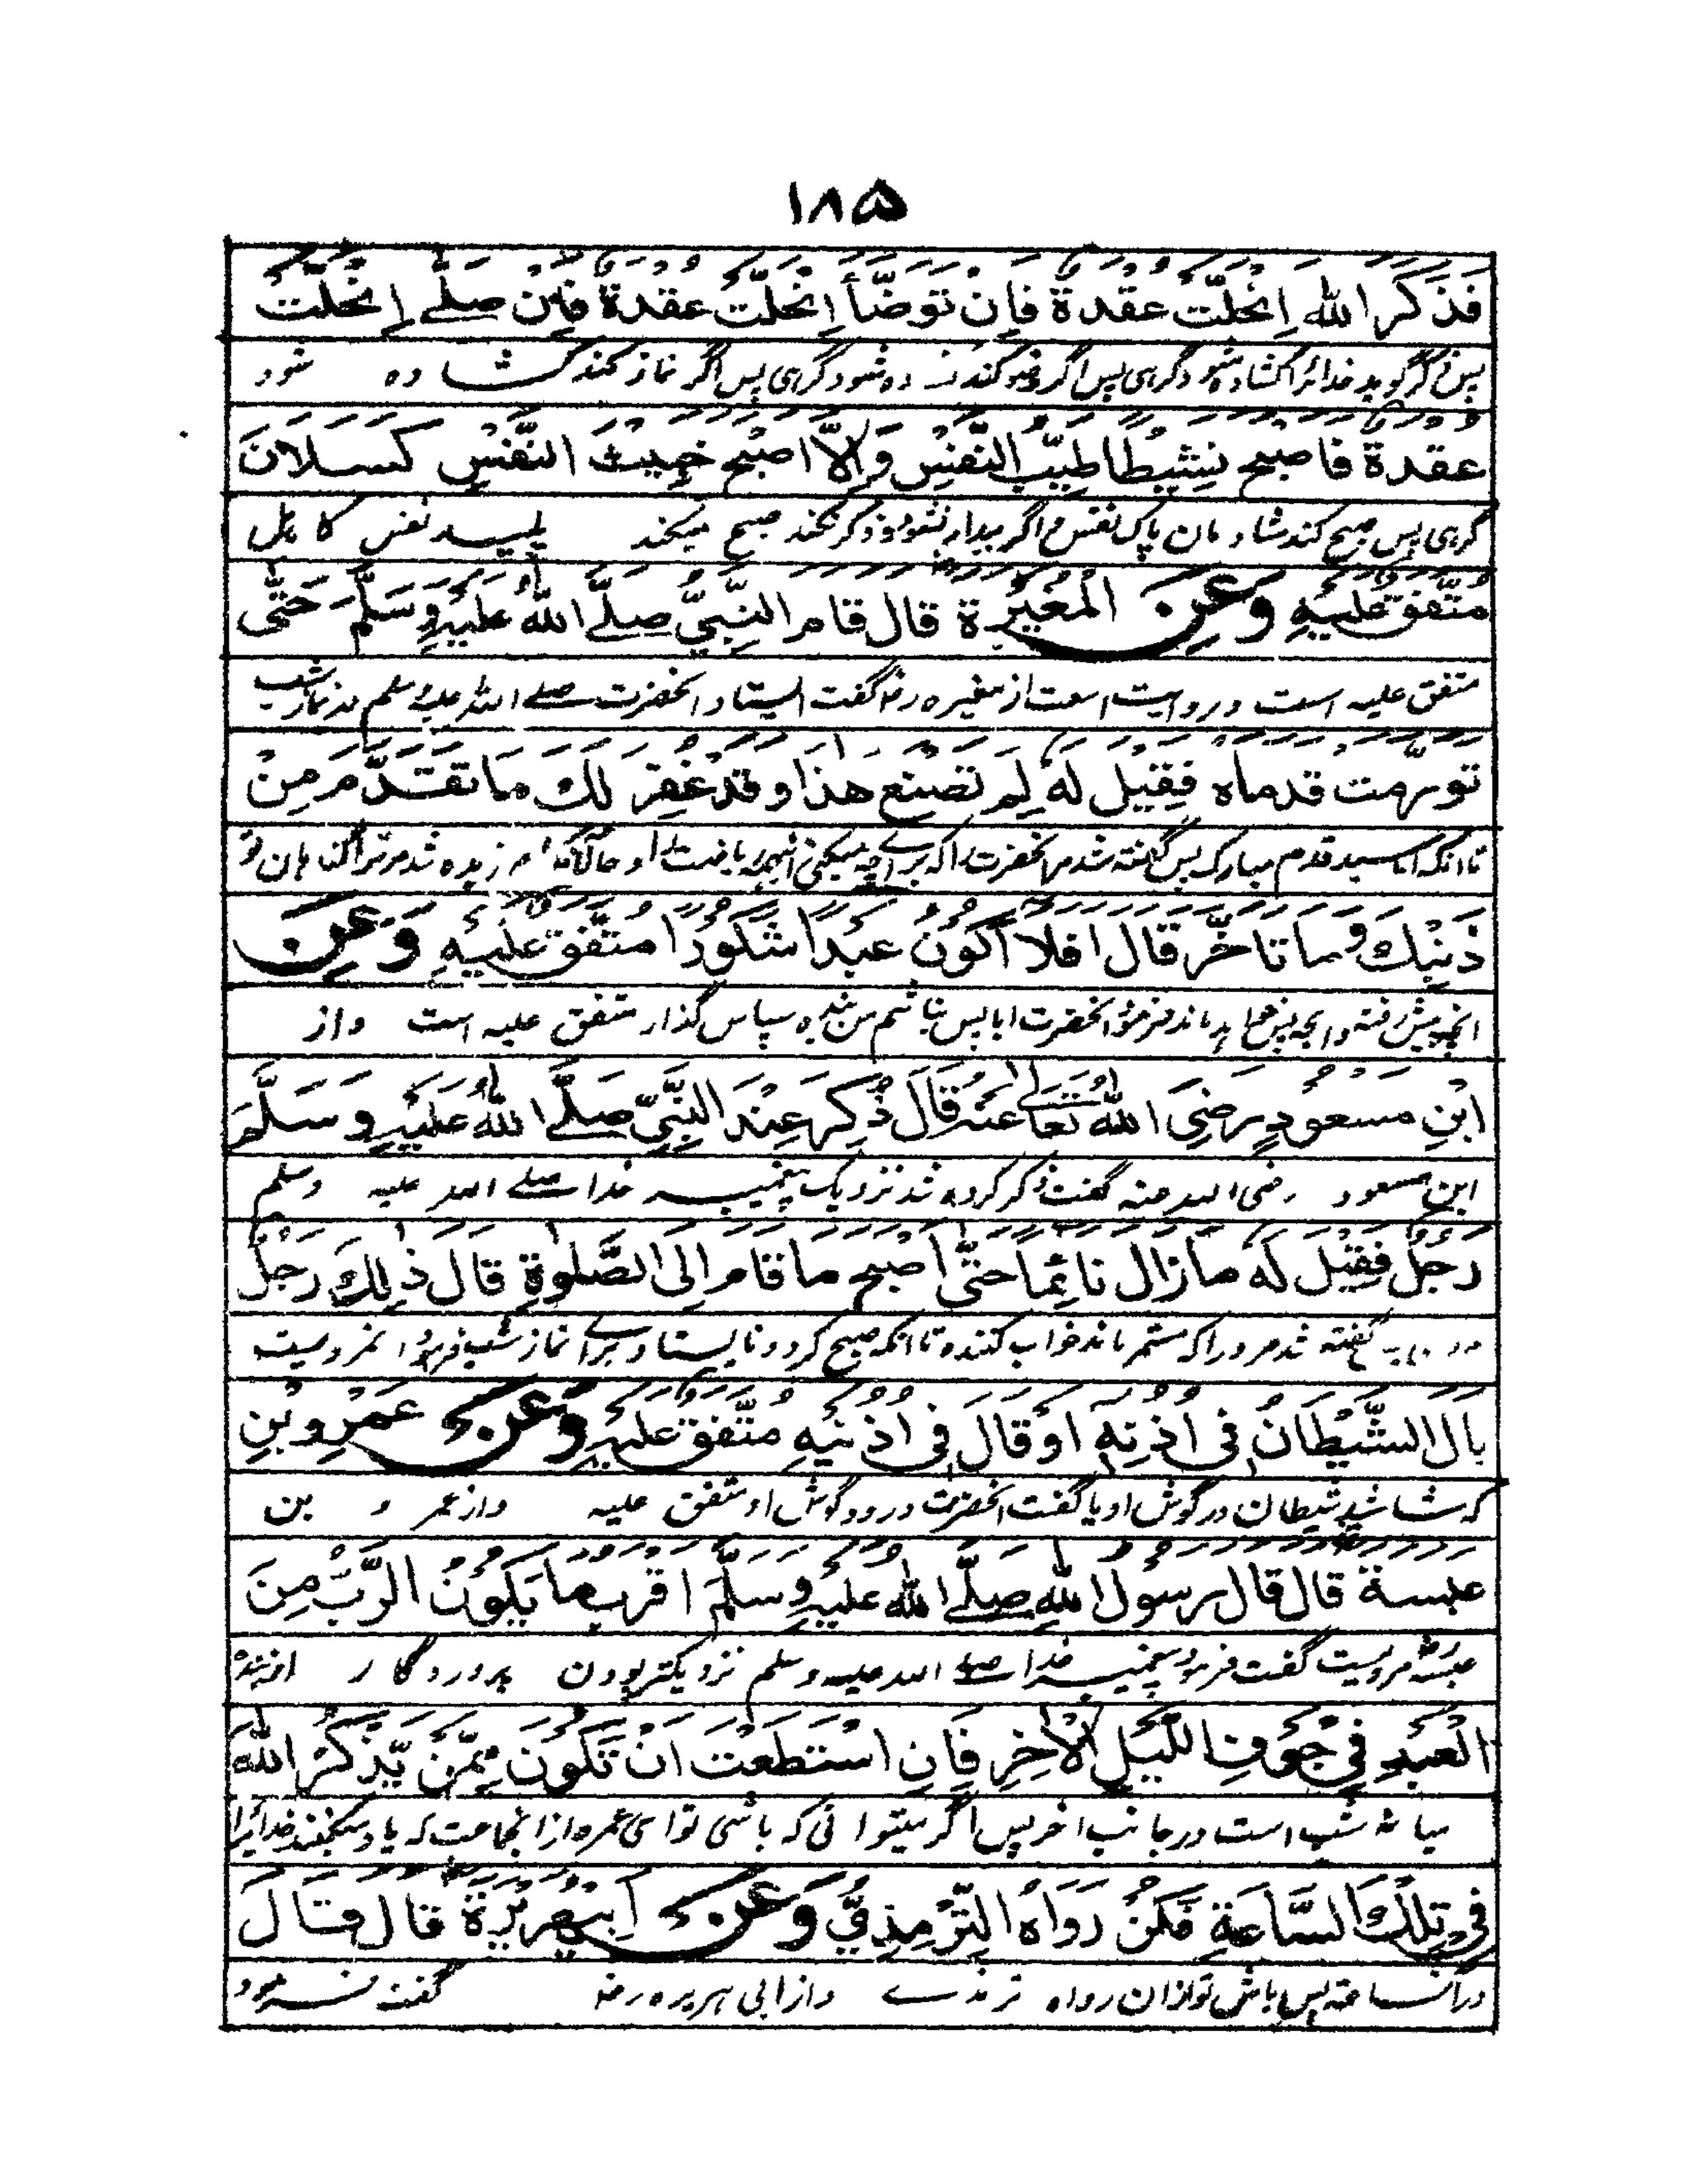 ١٨٥
فَذَكَرَ اللهَ اِنْحَلَّتْ عُقْدَةٌ فَاِنْ تَوَضَّأَ اِنْحَلَّتْ عُقْدَةٌ فَاِنْ صَلّٰے اِنْحَلَّتْ
پس اگر گوید خدائرا کشاده شود گرهی پس اگر وضو کند ده شود گرهی پس اگر نماز کند کشاده شود
عُقْدَةٌ فَاَصْبَحَ نَشِیْطًا طَیِّبَ النَّفْسِ وَاِلَّا اَصْبَحَ خَبِیْثَ النَّفْسِ کَسَلَانَ
گرهی پس صبح کند شادمان پاک نفس و اگر بیدار نشود و ذکر نکند صبح میکند پلید نفس کاهل
مُتَّفَقٌ عَلَیْهِ وَعَنِ الْمُغِیْرَةِ قَالَ قَامَ النَّبِیُّ صَلَّے اللهُ عَلَیْهِ وَسَلَّمَ حَتّٰی
متفق علیه است و روایت است از مغیره رض گفت ایستاد انحضرت صلے الله علیه وسلم در نماز شب
تَوَرَّمَتْ قَدَمَاهُ فَقِیْلَ لَهٗ لِمَ تَصْنَعُ هٰذَا وَقَدْ غُفِرَ لَكَ مَا تَقَدَّمَ مِنْ
تا انکه اماسید قدم مبارک پس گفته شد مر انحضرت را که برای چه میکنی اینهمه ریاضت را و حالانکه امرزیده شد مر ترا گناهان تو
ذَنْۢبِكَ وَمَا تَاَخَّرَ قَالَ اَفَلَا اَکُوْنُ عَبْدًا شَکُوْرًا مُتَّفَقٌ عَلَیْهِ وَعَنِ
انچه پیش رفته و انچه پس ماند فرمود انحضرت ایا پس نباشم من بنده سپاس گذار متفق علیه است واز
ابْنِ مَسْعُوْدٍ رَضِیَ اللهُ تَعَالٰے عَنْهُ قَالَ ذُکِرَ عِنْدَ النَّبِیِّ صَلَّے اللهُ عَلَیْهِ وَسَلَّمَ
ابن مسعود رضی الله عنه گفت ذکر کرده شد نزدیک پیغمبر خدا صلے الله علیه وسلم
رَجُلٌ فَقِیْلَ لَهٗ مَازَالَ نَائِمًا حَتّٰی اَصْبَحَ مَا قَامَ اِلَی الصَّلٰوةِ قَالَ ذٰلِكَ رَجُلٌ
گفته شد مر او را که مستمر ماند خواب کننده تا انکه صبح کرد و نایستاد برائے نماز شب فرمود
بَالَ الشَّیْطَانُ فِی اُذُنِهٖ اَوْ قَالَ فِی اُذُنَیْهِ مُتَّفَقٌ عَلَیْهِ وَعَنْ عَمْرِو بْنِ
که شاشید شیطان در گوش او یا گفت انحضرت در دو گوش او متفق علیه واز عمر و بن
عَبَسَةَ قَالَ قَالَ رَسُوْلُ اللهِ صَلَّے اللهُ عَلَیْهِ وَسَلَّمَ اَقْرَبُ مَا یَکُوْنُ الرَّبُّ مِنَ
عبسه مرویست گفت فرمود پیغمبر خدا صلے الله علیه وسلم نزدیکتر بودن پروردگار از بنده
الْعَبْدِ فِیْ جَوْفِ اللَّیْلِ الْاٰخِرِ فَاِنِ اسْتَطَعْتَ اَنْ تَکُوْنَ مِمَّنْ یَّذْکُرُ اللهَ
میانه شب است در جانب اخر پس اگر میتوانی که باشی تو ای عمرو از انجماعت که یاد میکنند خدائرا
فِیْ تِلْكَ السَّاعَةِ فَکُنْ رَوَاهُ التِّرْمِذِیُّ وَعَنْ اَبِیْهُرَیْرَةَ قَالَ قَالَ
در انساعت پس باش تو از ان رواه ترمذے واز ابی هریره رض گفت فرمود